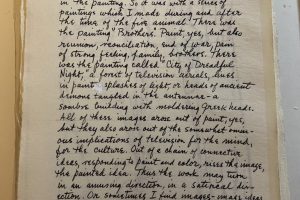 in the painting. So it was with a series of
paintings which I made during and after
the time of the five animal "There was
the painting "Brothers". Paint, yes, but also
reunion, reconciliation, end of war, pain
of strong feeling, family, brothers. There
was the painting called "City of Dreadful
Night," a forest of television aerials, lines
in paint, splashes of light, or heads of ancient
demons tangled in the antennae - a
sombre building with moldering Greek heads.
All of these images arose out of paint, yes,
but they also arose out of the somewhat omin-
ous implications of television for the mind,
for the culture. Out of a chain of connective
ideas, responding to paint and color, rises the image,
the painted idea. Thus the work may turn
in an amusing direction, in a satirical dir-
ection. Or sometimes I find images - image ideas